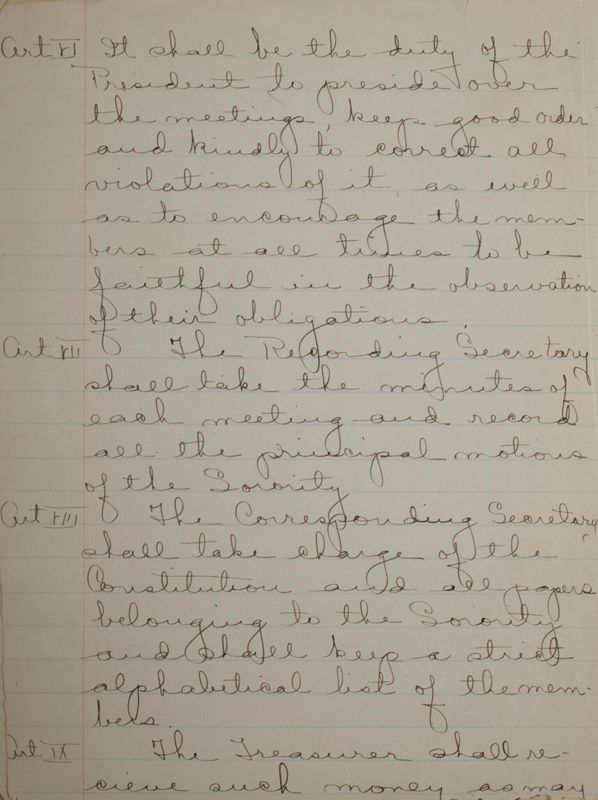 Art VI It shall be the duty of the
President to preside over
the meetings, keep good order
and kindly to correct all
violations of it, as well
as to encourage the mem-
bers at all times to be
faithful in the observation
of their obligations.
Art VII The Recording Secretary
shall take the minutes of
each meeting and record
all the principal motions
of the Sorority
Art VIII The Corresponding Secretary
shall take charge of the
Constitution and all papers
belonging to the Sorority
and shall keep a strict
alphabetical list of the mem-
bers.
Art IX The Treasurer shall re-
cieve such money as may